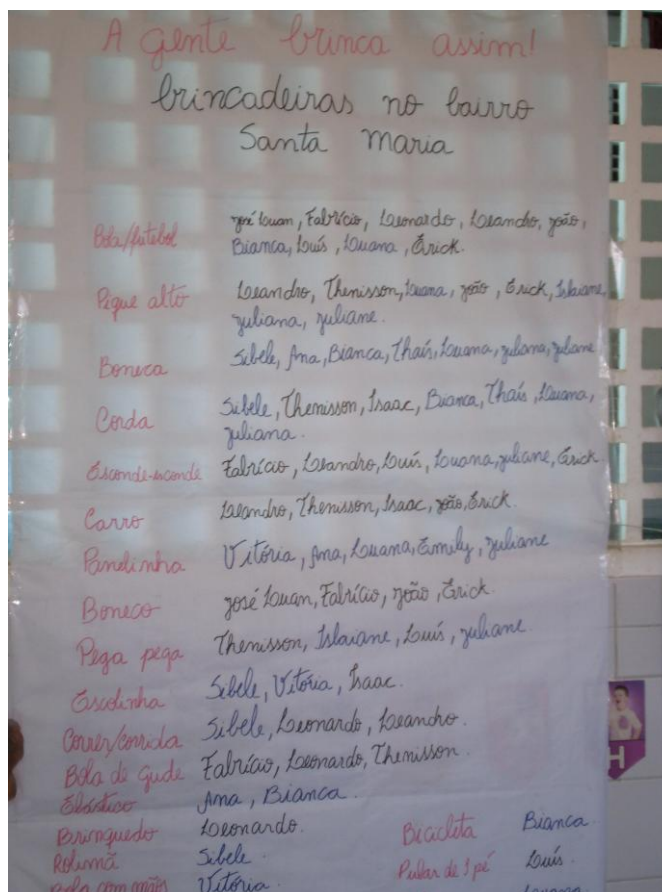 A gente brinca assim!
brincadeiras no bairro
Santa Maria
Bola/futebol José Luan, Fabrício, Leonardo, Leandro, João,
Bianca, Luís, Luana, Érick.
Pique alto Leandro, Thenisson, Luana, João, Érick, Islaiane,
Juliana, Juliane.
Boneca Sibele, Ana, Bianca, Thaís, Luana, Juliana, Juliane
Corda Sibele, Thenisson, Isaac, Bianca, Thaís, Luana,
Juliana.
Esconde-esconde Fabrício, Leandro, Luís, Luana, Juliane, Érick
Carro Leandro, Thenisson, Isaac, João, Érick.
Panelinha Vitória, Ana, Luana, Emily, Juliane
Boneco José Luan, Fabrício, João, Érick.
Pega pega Thenisson, Islaiane, Luís, Juliane.
Escolinha Sibele, Vitória, Isaac.
Correr/corrida Sibele, Leonardo, Leandro.
Bola de Gude Fabrício, Leonardo, Thenisson.
Elástico Ana, Bianca.
Brinquedo Leonardo. Bicicleta Bianca.
Rolimã Sibele. Pular de 1 pé Luís.
Bola com mãos Vitória. Luana
H